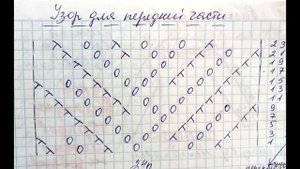 Узор для передней части
23
21
19
17
15
13
11
9
7
5
3
1
24п